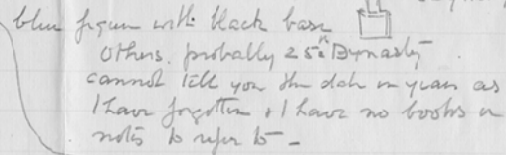 blue figure with black base
others. probably 25th Dynasty.
cannot tell you the date in years as
I have forgotten & I have no books or
notes to refer to -